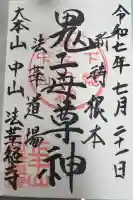 令和七年七月二十一日
祈祷根本
鬼子母尊神
法華道場
大本山中山法華経寺